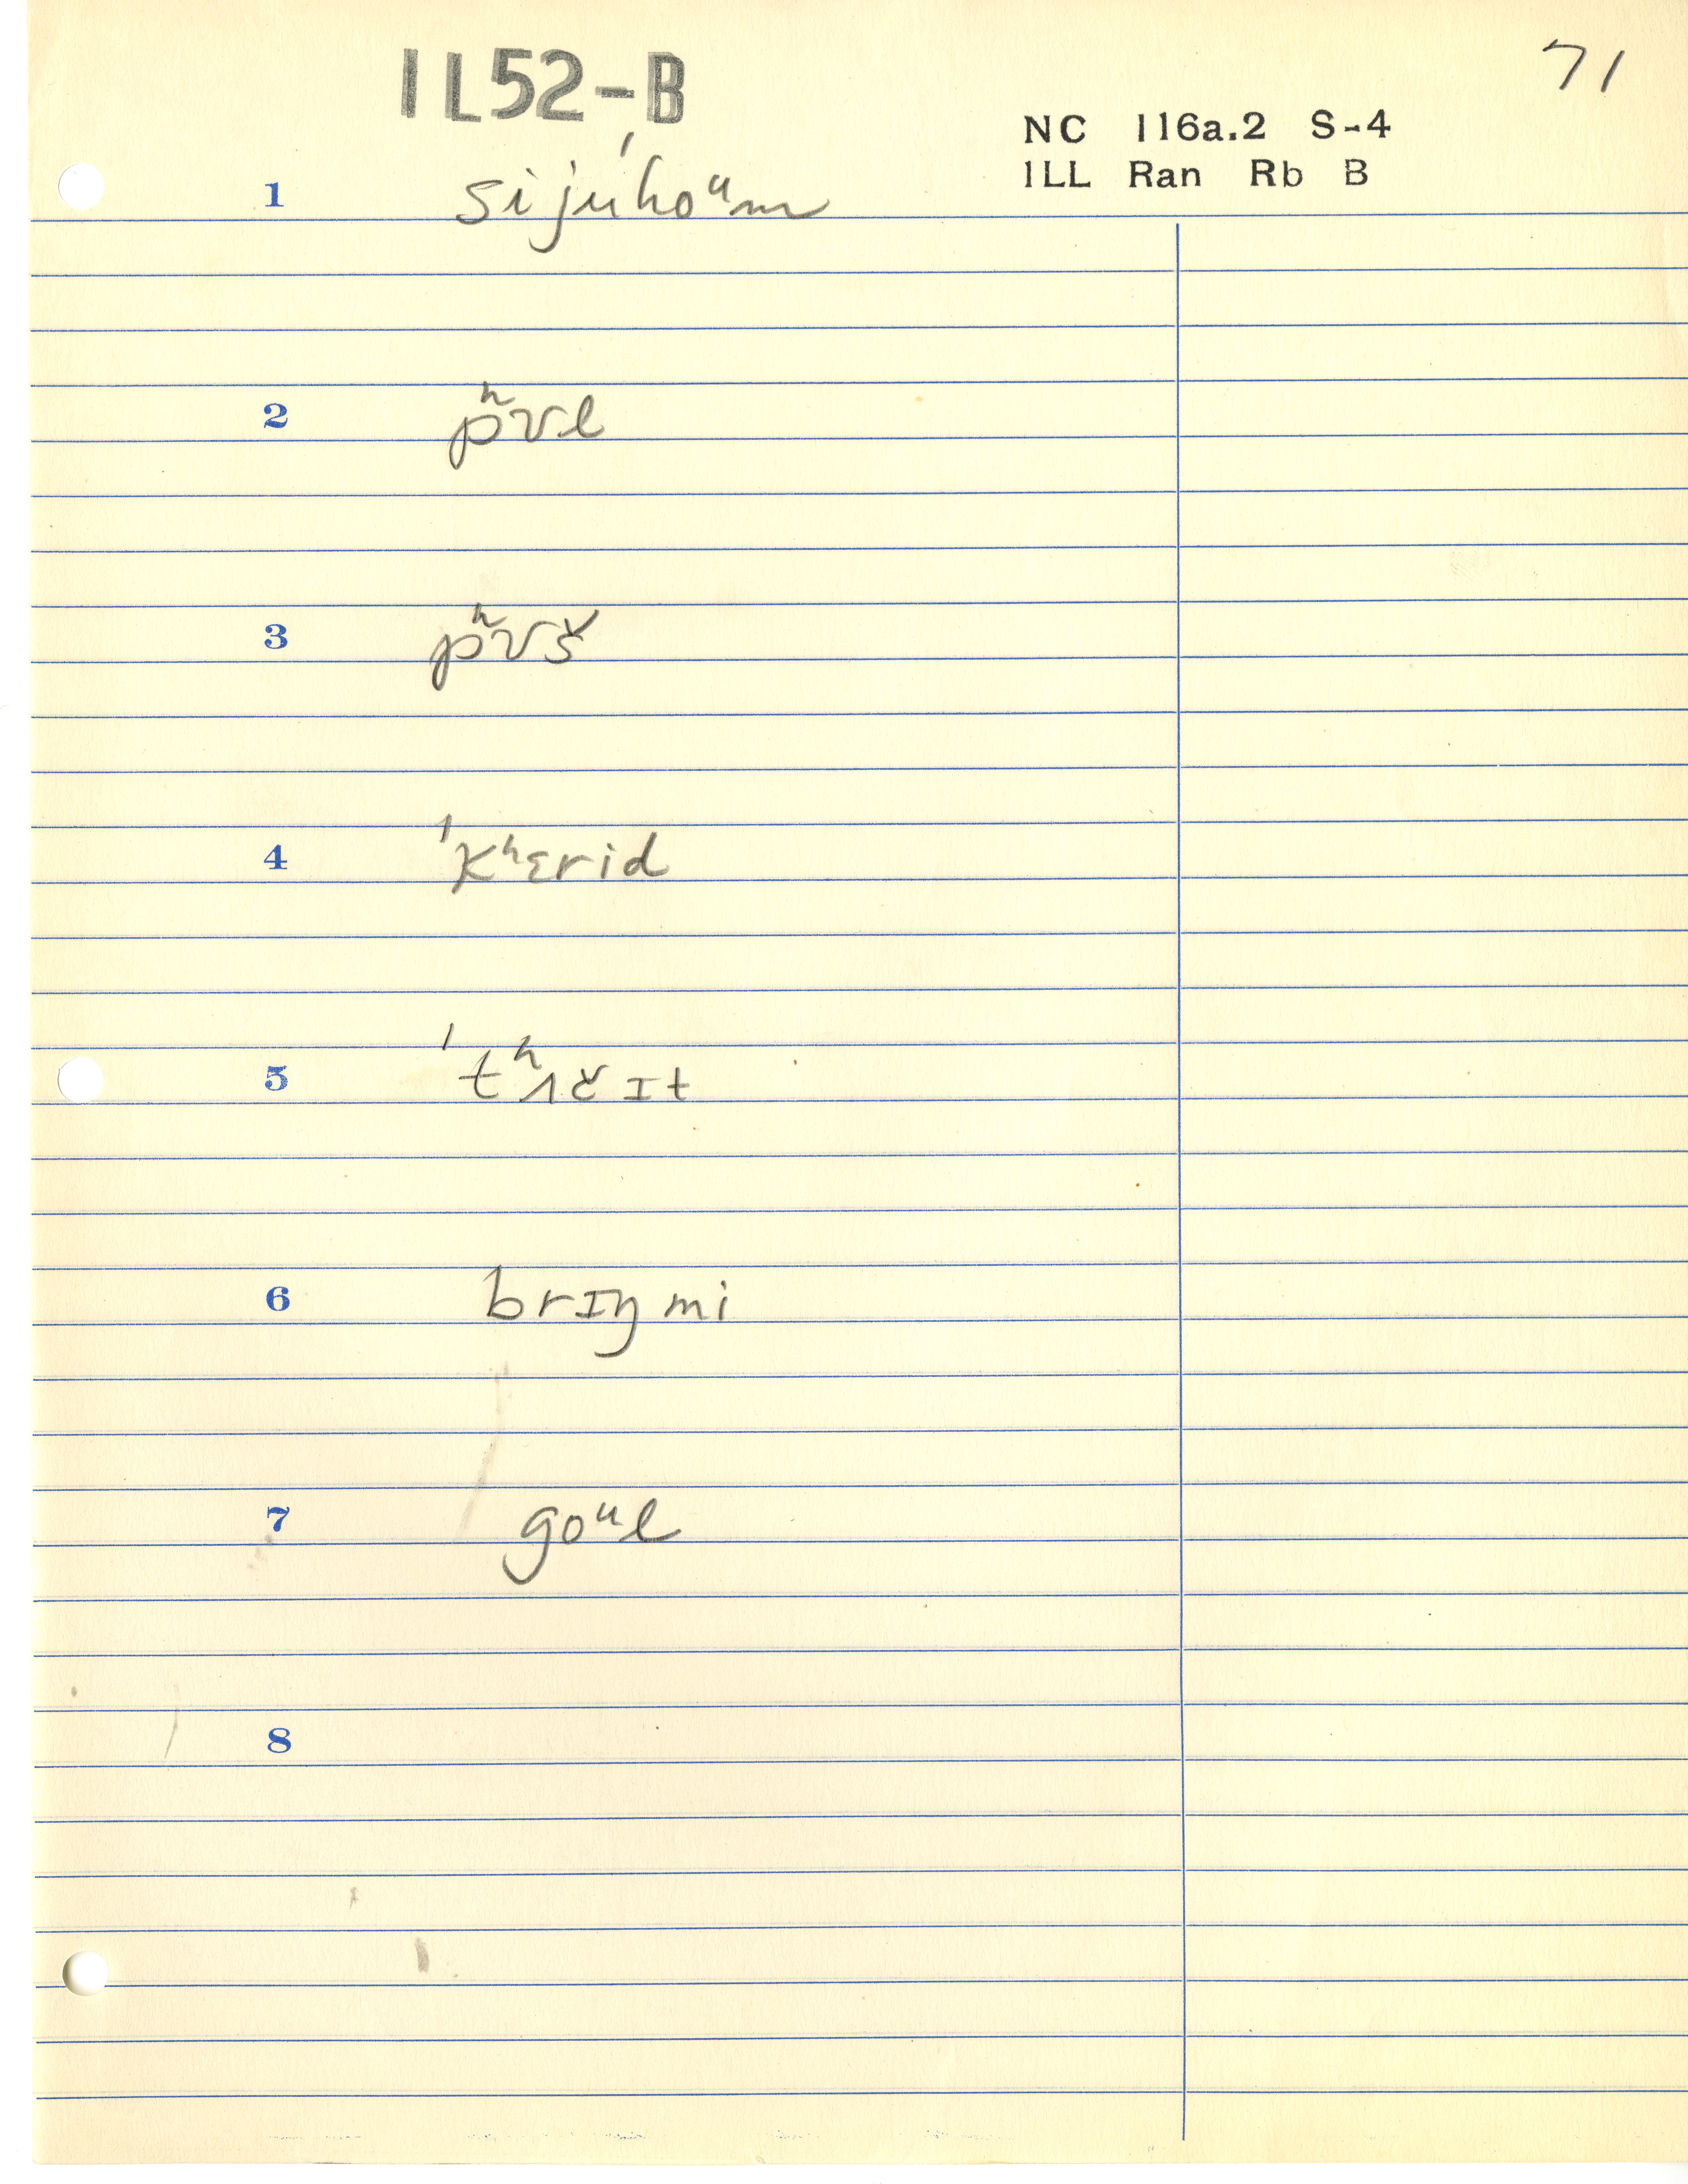 IL52-B
71
NC 116a.2 S-4
ILL Ran Rb B
1 sijuˈhoᵘm
2 pʰᴜl
3 pʰᴜš
4 ˈkʰɛrid
5 ˈtʰʌčɪt
6 brɪŋ mi
7 goᵘl
8